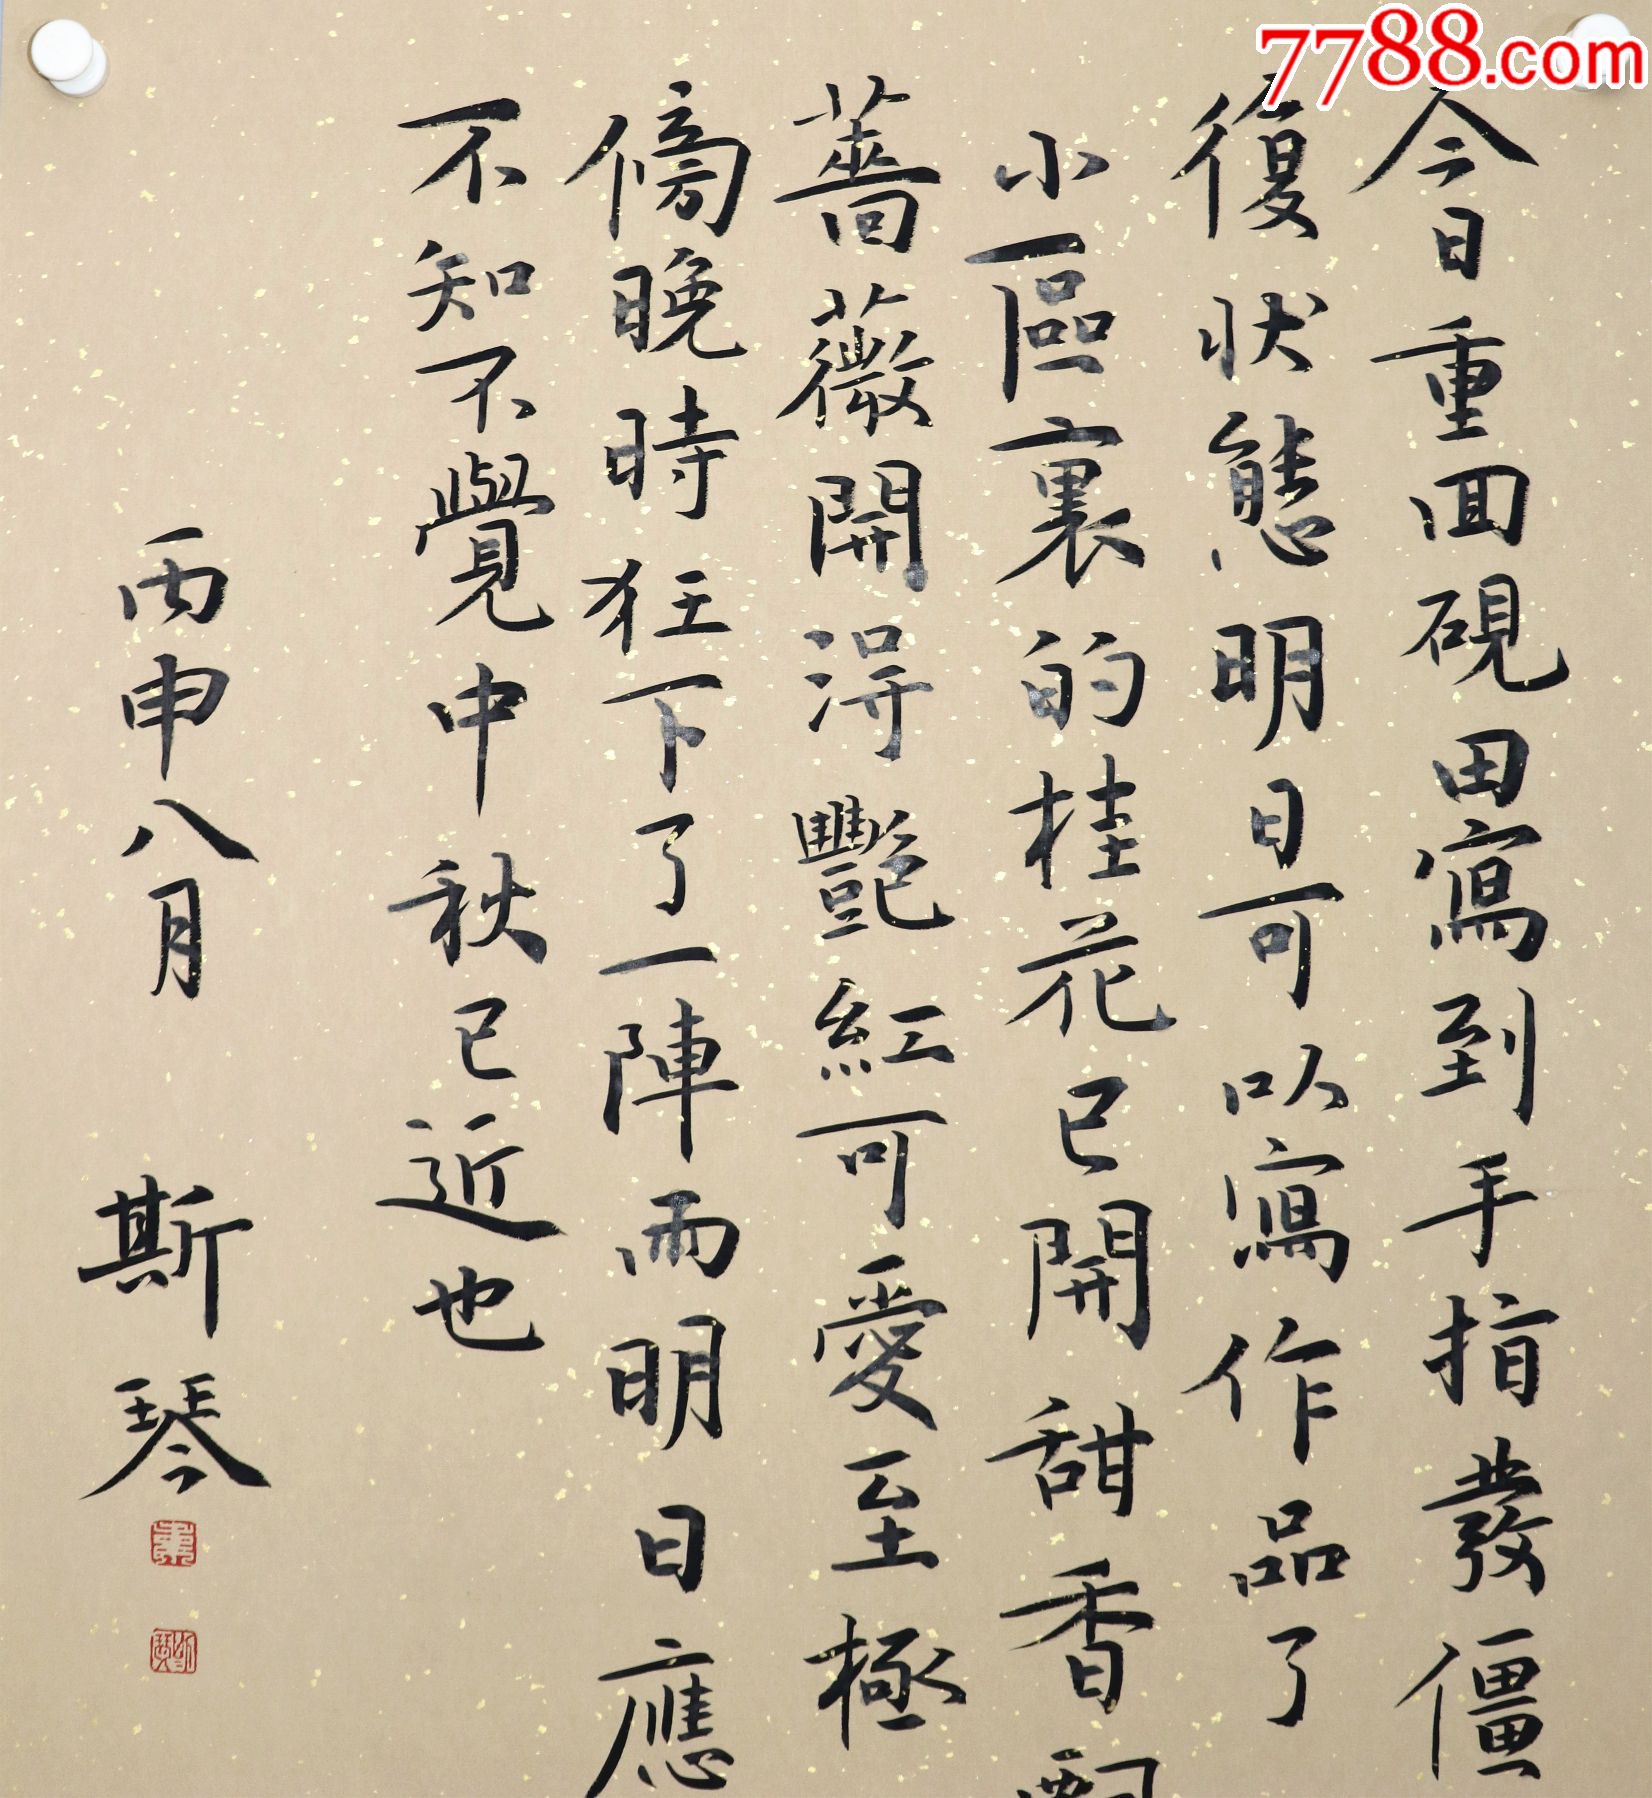 7788.com
今日重回硯田寫到手指發僵
復狀態明日可以寫作品了
小區裏的桂花已開甜香
薔薇開得艷紅可愛至極
傍晚時狂下了一陣雨明日應
不知不覺中秋已近也
丙申八月 斯琴